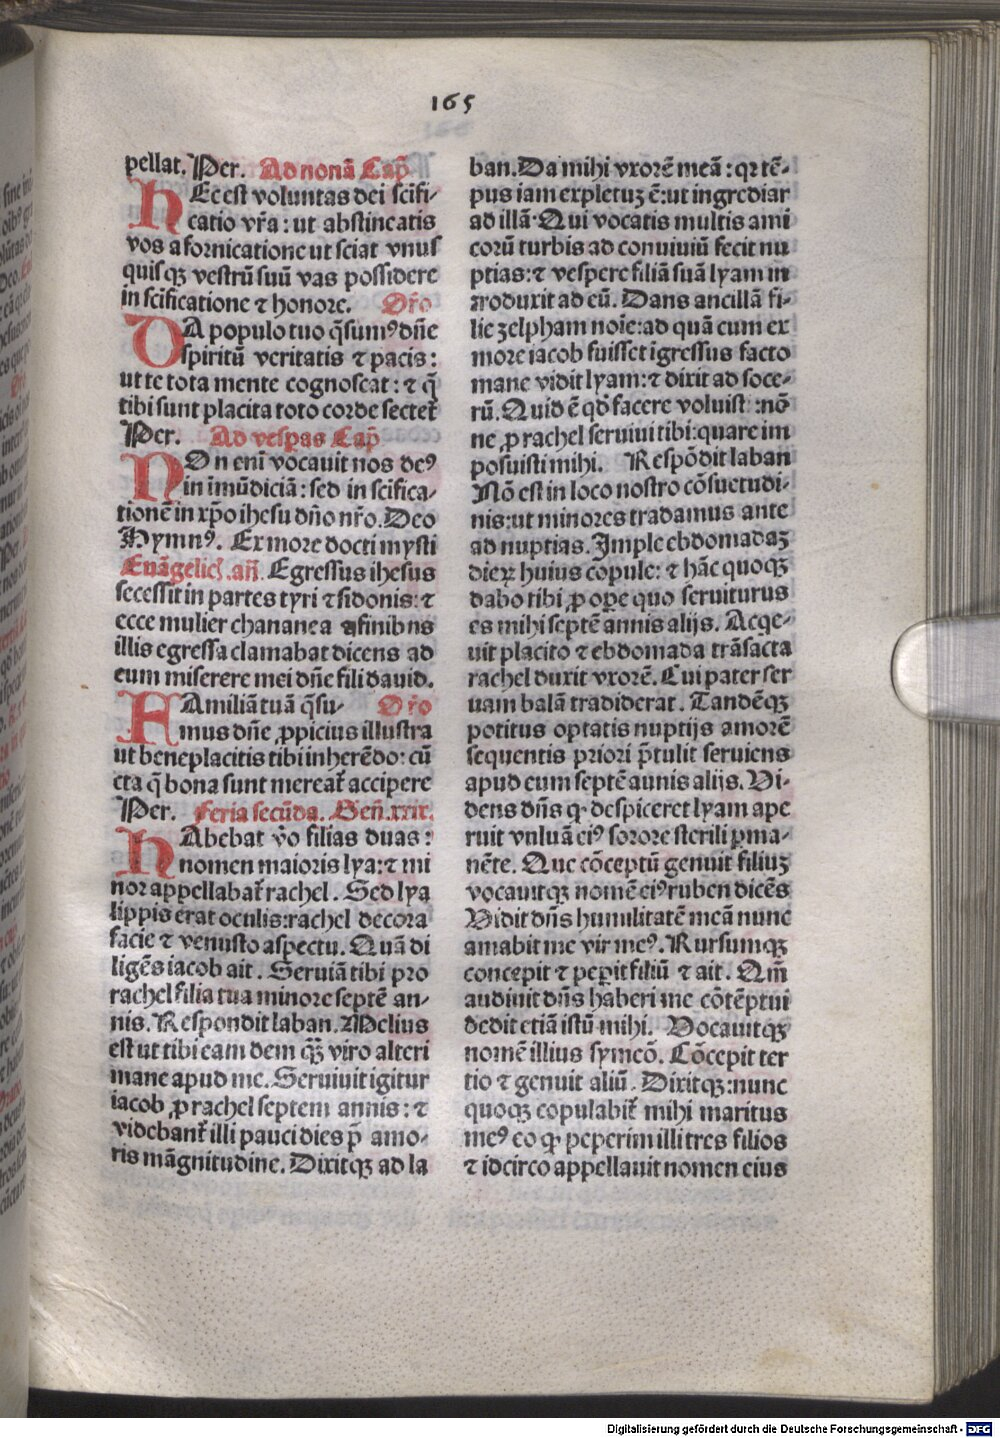 165
pellat. Per. Ad nonā Cap̄
HEc est voluntas dei scifi-
catio vr̄a : ut abstineatis
vos a fornicatione ut sciat vnus
quisqꝫ vestrū suū vas possidere
in scificatione ⁊ honore. Or̄o
DA populo tuo q̄sumꝰ dn̄e
spiritū veritatis ⁊ pacis :
ut te tota mente cognoscat : ⁊ q̄
tibi sunt placita toto corde sectet᷑
Per. Ad vesp̄as Cap̄
NOn enī vocauit nos deꝰ
in īmūdiciā : sed in scifica-
tionē in xp̄o ihesu dn̄o nr̄o. Deo
Hymnꝰ. Ex more docti mysti
Euāgelic̄. an̄. Egressus ihesus
secessit in partes tyri ⁊ sidonis: ⁊
ecce mulier chananea a finibus
illis egressa clamabat dicens ad
eum miserere mei dn̄e fili dauid.
FAmiliā tuā q̄su- Or̄o
mus dn̄e ꝓpicius illustra
ut beneplacitis tibi inherēdo: cū
cta q̄ bona sunt mereat᷑ accipere
Per. Feria secūda. Gen̄. xxix.
HAbebat v̄o filias duas :
nomen maioris lya: ⁊ mi
nor appellabat᷑ rachel. Sed lya
lippis erat oculis: rachel decora
facie ⁊ venusto aspectu. Quā di
ligēs iacob ait. Seruiā tibi pro
rachel filia tua minore septē an-
nis. Respondit laban. Melius
est ut tibi eam dem qꝫ̄ viro alteri
mane apud me. Seruiuit igitur
iacob ꝓ rachel septem annis : ⁊
videbant᷑ illi pauci dies p̄ amo-
ris māgnitudine. Dixitqꝫ ad la
ban. Da mihi vxorē meā : qꝛ tē-
pus iam expletuꝫ ē: ut ingrediar
ad illā. Qui vocatis multis ami
corū turbis ad conuiuiū fecit nu
ptias: ⁊ vespere filiā suā lyam in
troduxit ad eū. Dans ancillā fi-
lie zelpham noīe: ad quā cum ex
more iacob fuisset īgressus facto
mane vidit lyam: ⁊ dixit ad soce-
rū. Quid ē qd̄ facere voluist : nō
ne ꝓ rachel seruiui tibi: quare im
posuisti mihi. Respōdit laban
Nō est in loco nostro cōsuetudi-
nis: ut minores tradamus ante
ad nuptias. Imple ebdomadaꝫ
dieꝝ huius copule: ⁊ hāc quoqꝫ
dabo tibi ꝓ oꝑe quo seruiturus
es mihi septē annis alijs. Acqe-
uit placito ⁊ ebdomada trāsacta
rachel duxit vxorē. Cui pater ser
uam balā tradiderat. Tandēqꝫ
potitus optatis nuptijs amorē
sequentis priori p̄tulit seruiens
apud eum septē annis alijs. Vi-
dens dn̄s qꝙ despiceret lyam ape
ruit vuluā eiꝰ sorore sterili ꝑma-
nēte. Que cōceptū genuit filiuꝫ
vocauitqꝫ nomē eiꝰ ruben dicēs
Vidit dn̄s humilitatē meā nunc
amabit me vir meꝰ. Rursumqꝫ
concepit ⁊ peꝑit filiū ⁊ ait. Qm̄
audiuit dn̄s haberi me cōtēptui
dedit etiā istū mihi. Vocauitqꝫ
nomē illius symeō. Cōcepit ter
tio ⁊ genuit aliū. Dixitqꝫ: nunc
quoqꝫ copulabit᷑ mihi maritus
meꝰ eo qꝙ peperim illi tres filios
⁊ idcirco appellauit nomen eius
Digitalisierung gefördert durch die Deutsche Forschungsgemeinschaft - DFG